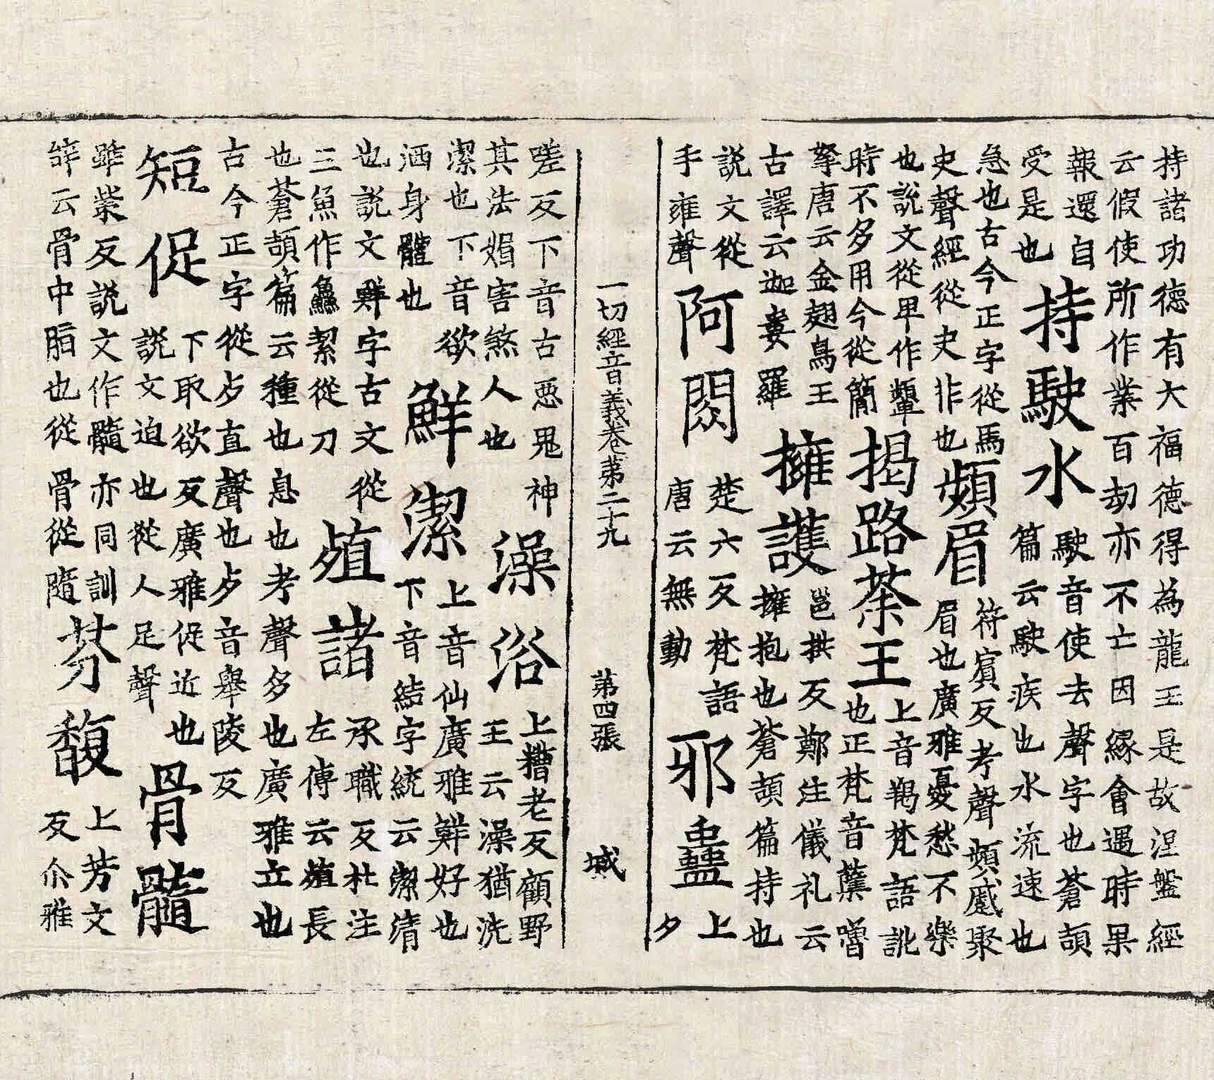 持諸功德有大福德得為龍王是故涅盤經
云假使所作業百劫亦不亡因緣會遇時果
報還自
受是也
持駛水
駛音使去聲字也蒼頡
篇云駛疾也水流速也
急也古今正字從馬
史聲經從史非也
頻眉
符賔反考聲頻慼聚
眉也廣雅憂愁不樂
也說文從卑作顰
時不多用今從簡
揭路荼王
上音羯梵語訛
也正梵音櫱嚕
拏唐云金翅鳥王
古譯云迦婁羅
擁護
邕拱反鄭注儀礼云
擁抱也蒼頡篇持也
說文從
手雍聲
阿閦
楚六反梵語
唐云無動
邪蠱
上
夕
一切經音義卷苐二十九 苐四張 城
嗟反下音古惡鬼神
其法媢害煞人也
澡浴
上糟老反顧野
王云澡猶洗
潔也下音欲
洒身體也
鮮潔
上音仙廣雅鮮好也
下音結字統云潔清
也說文鮮字古文從
三魚作鱻絜從刀
殖諸
承職反杜注
左傳云殖長
也蒼頡篇云種也息也考聲多也廣雅立也
古今正字從歺直聲也歺音舉陵反
短促
下取欲反廣雅促近也
說文迫也從人足聲
骨髓
雖紫反說文作髓亦同訓
辝云骨中脂也從骨從隨
芬馥
上芳文
反尒雅